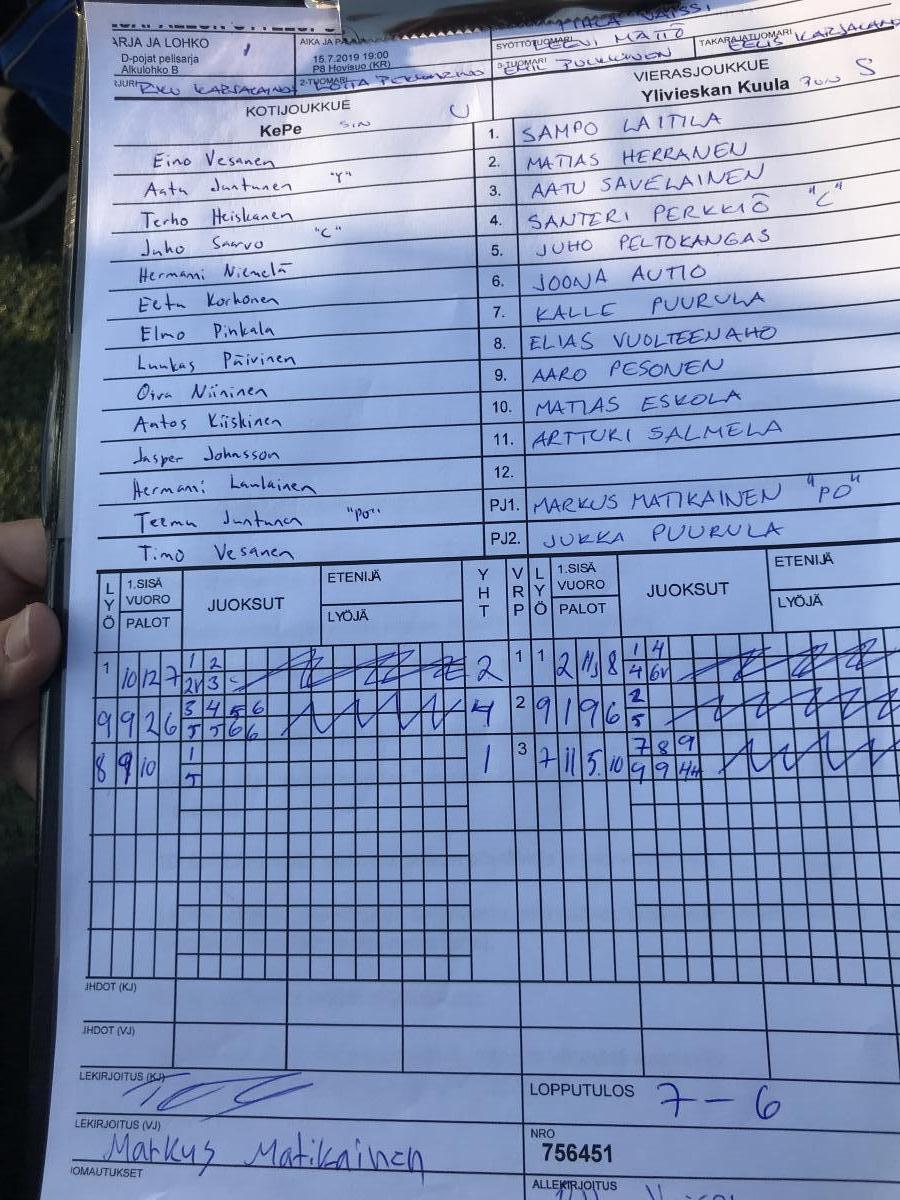 ARJA JA LOHKO
D-pojat pelisarja
Alkulohko B
1
AIKA JA
15.7.2019 19:00
P8 Hovisuo (KR)
SYÖTTÖTUOMARI
LEEVI MATIÖ
TAKARAJATUOMARI
EELIS KARJALAINEN
2-TUOMARI
3-TUOMARI
EMIL PULKKINEN
KOTIJOUKKUE
KePe SIN U
VIERASJOUKKUE
Ylivieskan Kuula PUN S
Eino Vesanen
1. SAMPO LAITILA
Aatu Juntunen "Y"
2. MATIAS HERRANEN
Terho Heiskanen
3. AATU SAVELAINEN
Juho Saarvo "C"
4. SANTERI PERKKIÖ "C"
Hermanni Niemelä
5. JUHO PELTOKANGAS
Eetu Korhonen
6. JOONA AUTIO
Elmo Pinkala
7. KALLE PUURULA
Luukas Päivinen
8. ELIAS VUOLTEENAHO
Oiva Niininen
9. AARO PESONEN
Aatos Kiiskinen
10. MATIAS ESKOLA
Jasper Johnsson
11. ARTTURI SALMELA
Hermanni Laulainen
12.
Teemu Juntunen "PO"
PJ1. MARKUS MATIKAINEN "PO"
Timo Vesanen
PJ2. JUKKA PUURULA
LYÖ
1.SISÄ VUORO
PALOT
JUOKSUT
ETENIJÄ
LYÖJÄ
YHT
VRP
LYÖ
1.SISÄ VUORO
PALOT
JUOKSUT
ETENIJÄ
LYÖJÄ
1 10 12 7 1 2 2 1 1 2 11 8 1 4
2v 3 4 6v
9 9 2 6 3 4 5 6 4 2 9 1 9 6 2
5 5 6 6 5
8 9 10 1 1 3 7 11 5 10 7 8 9
5 9 9
IHDOT (KJ)
IHDOT (VJ)
LEKIRJOITUS (KJ)
LOPPUTULOS 7 - 6
LEKIRJOITUS (VJ)
Markus Matikainen
NRO
756451
IOMAUTUKSET
ALLEKIRJOITUS